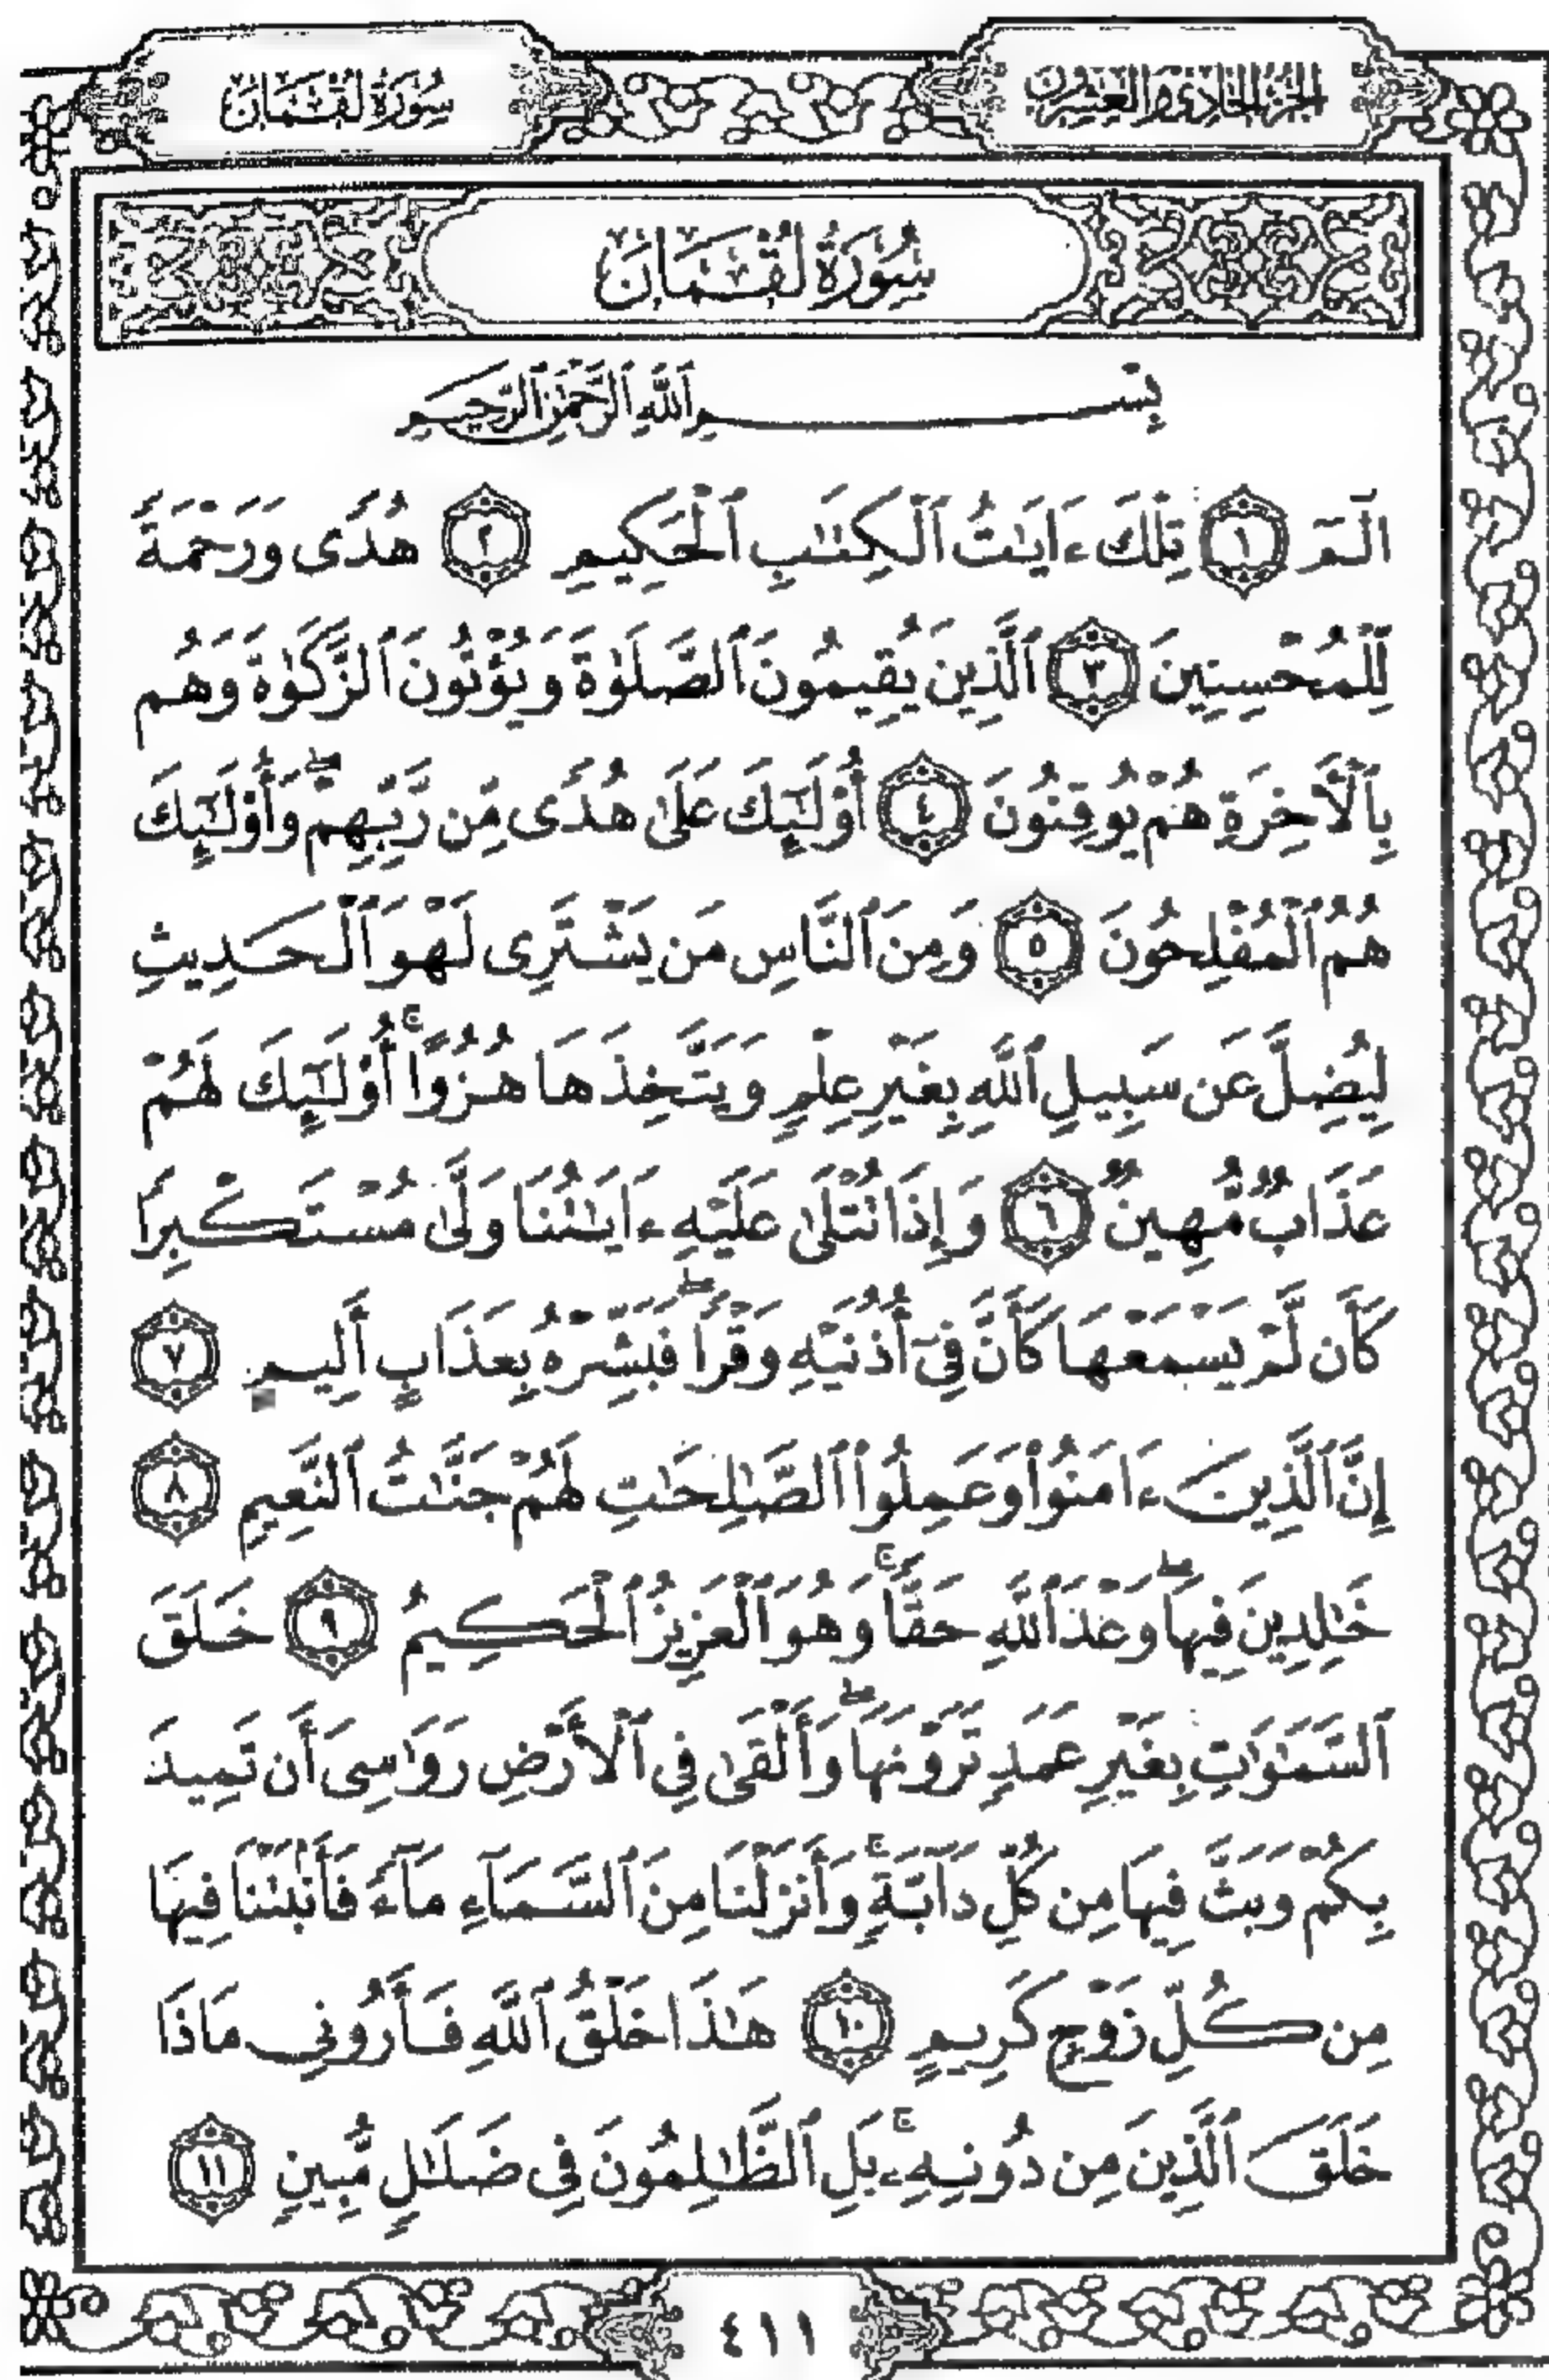 الجزء الحادي والعشرون
سُورَةُ لُقْمَانَ
سُورَةُ لُقْمَانَ
بِسْمِ ٱللَّهِ ٱلرَّحْمَٰنِ ٱلرَّحِيمِ
الٓمٓ ١ تِلْكَ ءَايَٰتُ ٱلْكِتَٰبِ ٱلْحَكِيمِ ٢ هُدًى وَرَحْمَةً
لِّلْمُحْسِنِينَ ٣ ٱلَّذِينَ يُقِيمُونَ ٱلصَّلَوٰةَ وَيُؤْتُونَ ٱلزَّكَوٰةَ وَهُم
بِٱلْأَخِرَةِ هُمْ يُوقِنُونَ ٤ أُوْلَٰٓئِكَ عَلَىٰ هُدًى مِّن رَّبِّهِمْ ۖ وَأُوْلَٰٓئِكَ
هُمُ ٱلْمُفْلِحُونَ ٥ وَمِنَ ٱلنَّاسِ مَن يَشْتَرِى لَهْوَ ٱلْحَدِيثِ
لِيُضِلَّ عَن سَبِيلِ ٱللَّهِ بِغَيْرِ عِلْمٍ وَيَتَّخِذَهَا هُزُوًا ۚ أُوْلَٰٓئِكَ لَهُمْ
عَذَابٌ مُّهِينٌ ٦ وَإِذَا تُتْلَىٰ عَلَيْهِ ءَايَٰتُنَا وَلَّىٰ مُسْتَكْبِرًا
كَأَن لَّمْ يَسْمَعْهَا كَأَنَّ فِىٓ أُذُنَيْهِ وَقْرًا ۖ فَبَشِّرْهُ بِعَذَابٍ أَلِيمٍ ٧
إِنَّ ٱلَّذِينَ ءَامَنُوا۟ وَعَمِلُوا۟ ٱلصَّٰلِحَٰتِ لَهُمْ جَنَّٰتُ ٱلنَّعِيمِ ٨
خَٰلِدِينَ فِيهَا ۖ وَعْدَ ٱللَّهِ حَقًّا ۚ وَهُوَ ٱلْعَزِيزُ ٱلْحَكِيمُ ٩ خَلَقَ
ٱلسَّمَٰوَٰتِ بِغَيْرِ عَمَدٍ تَرَوْنَهَا ۖ وَأَلْقَىٰ فِى ٱلْأَرْضِ رَوَٰسِىَ أَن تَمِيدَ
بِكُمْ وَبَثَّ فِيهَا مِن كُلِّ دَآبَّةٍ ۚ وَأَنزَلْنَا مِنَ ٱلسَّمَآءِ مَآءً فَأَنۢبَتْنَا فِيهَا
مِن كُلِّ زَوْجٍ كَرِيمٍ ١٠ هَٰذَا خَلْقُ ٱللَّهِ فَأَرُونِى مَاذَا
خَلَقَ ٱلَّذِينَ مِن دُونِهِۦ ۚ بَلِ ٱلظَّٰلِمُونَ فِى ضَلَٰلٍ مُّبِينٍ ١١
٤١١